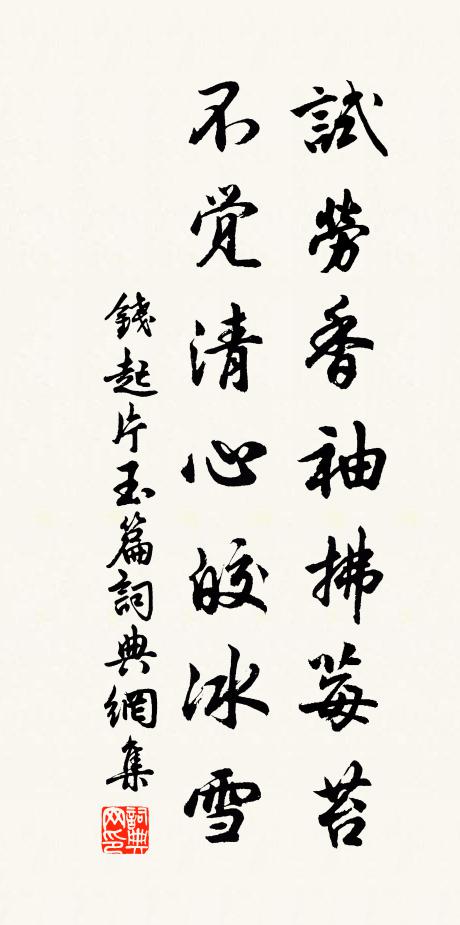 試勞香袖拂莓苔
不覚清心皎冰雪
錢起片玉篇詞典網集
詞典网印